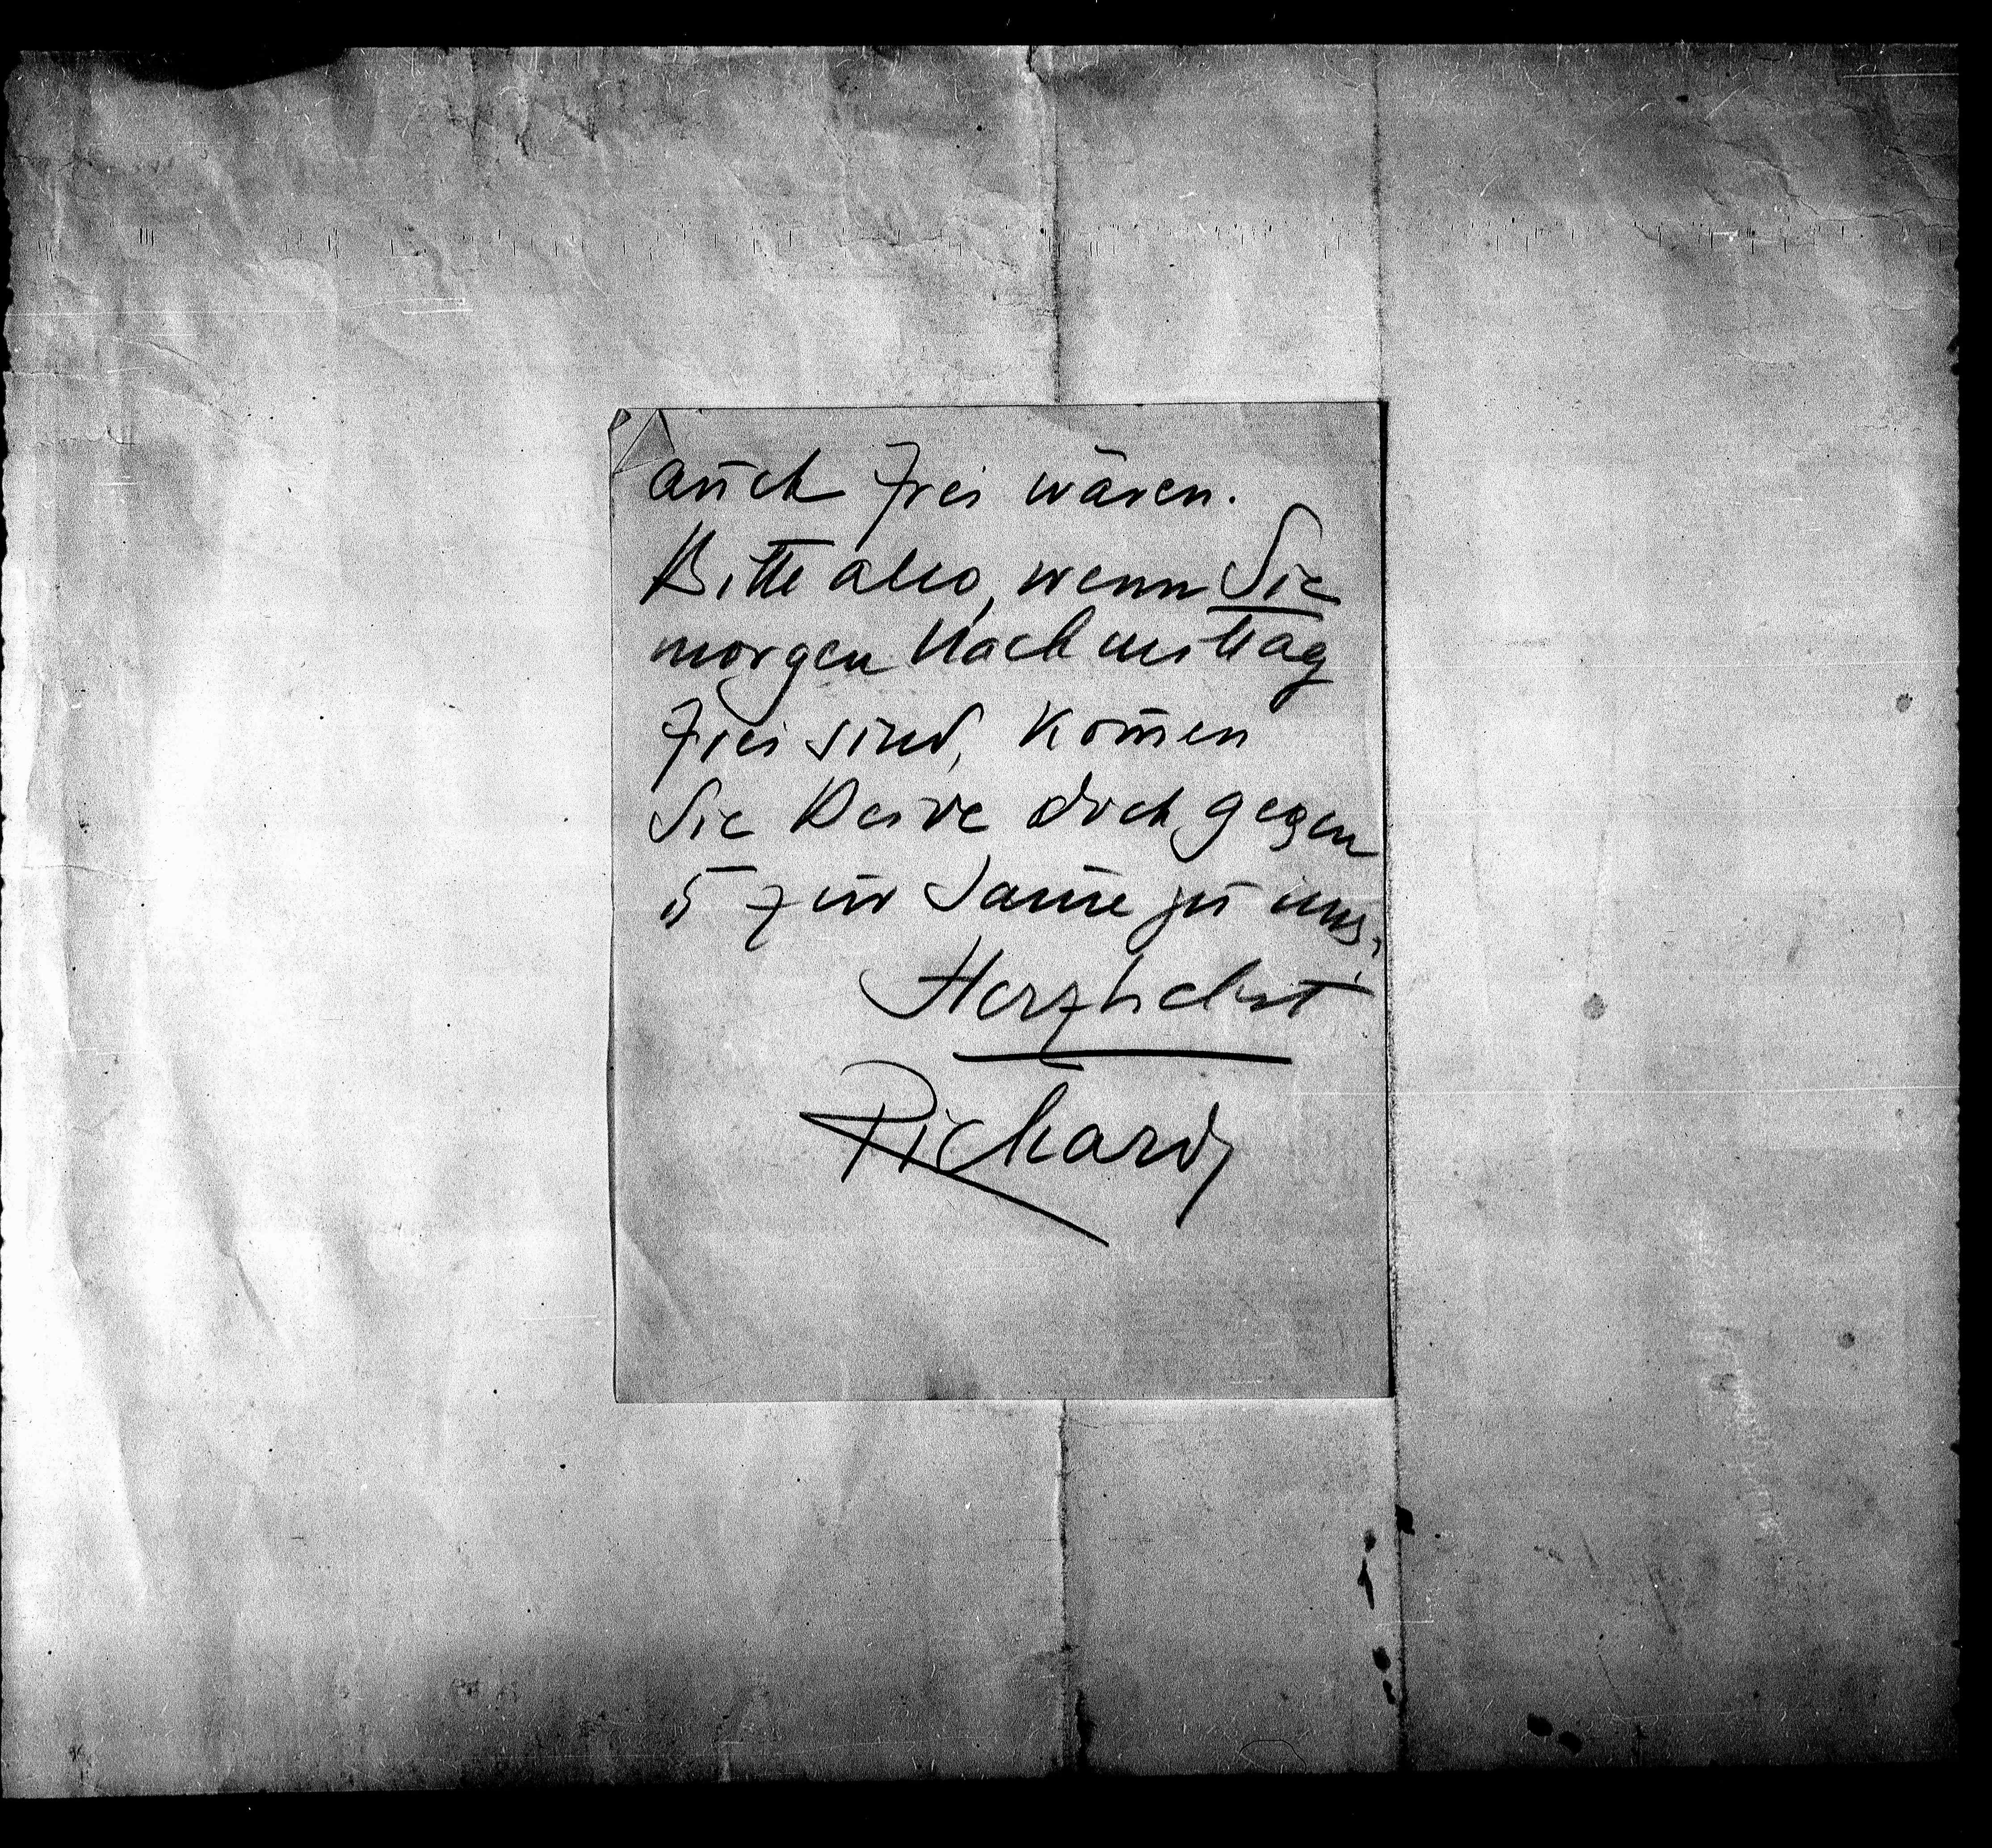 auch frei wären.
Bitte also, wenn Sie
morgen Nachmittag
frei sind, kom̄en
Sie Beide doch gegen
5 zur Jause zu uns.
Herzlichst
Richard